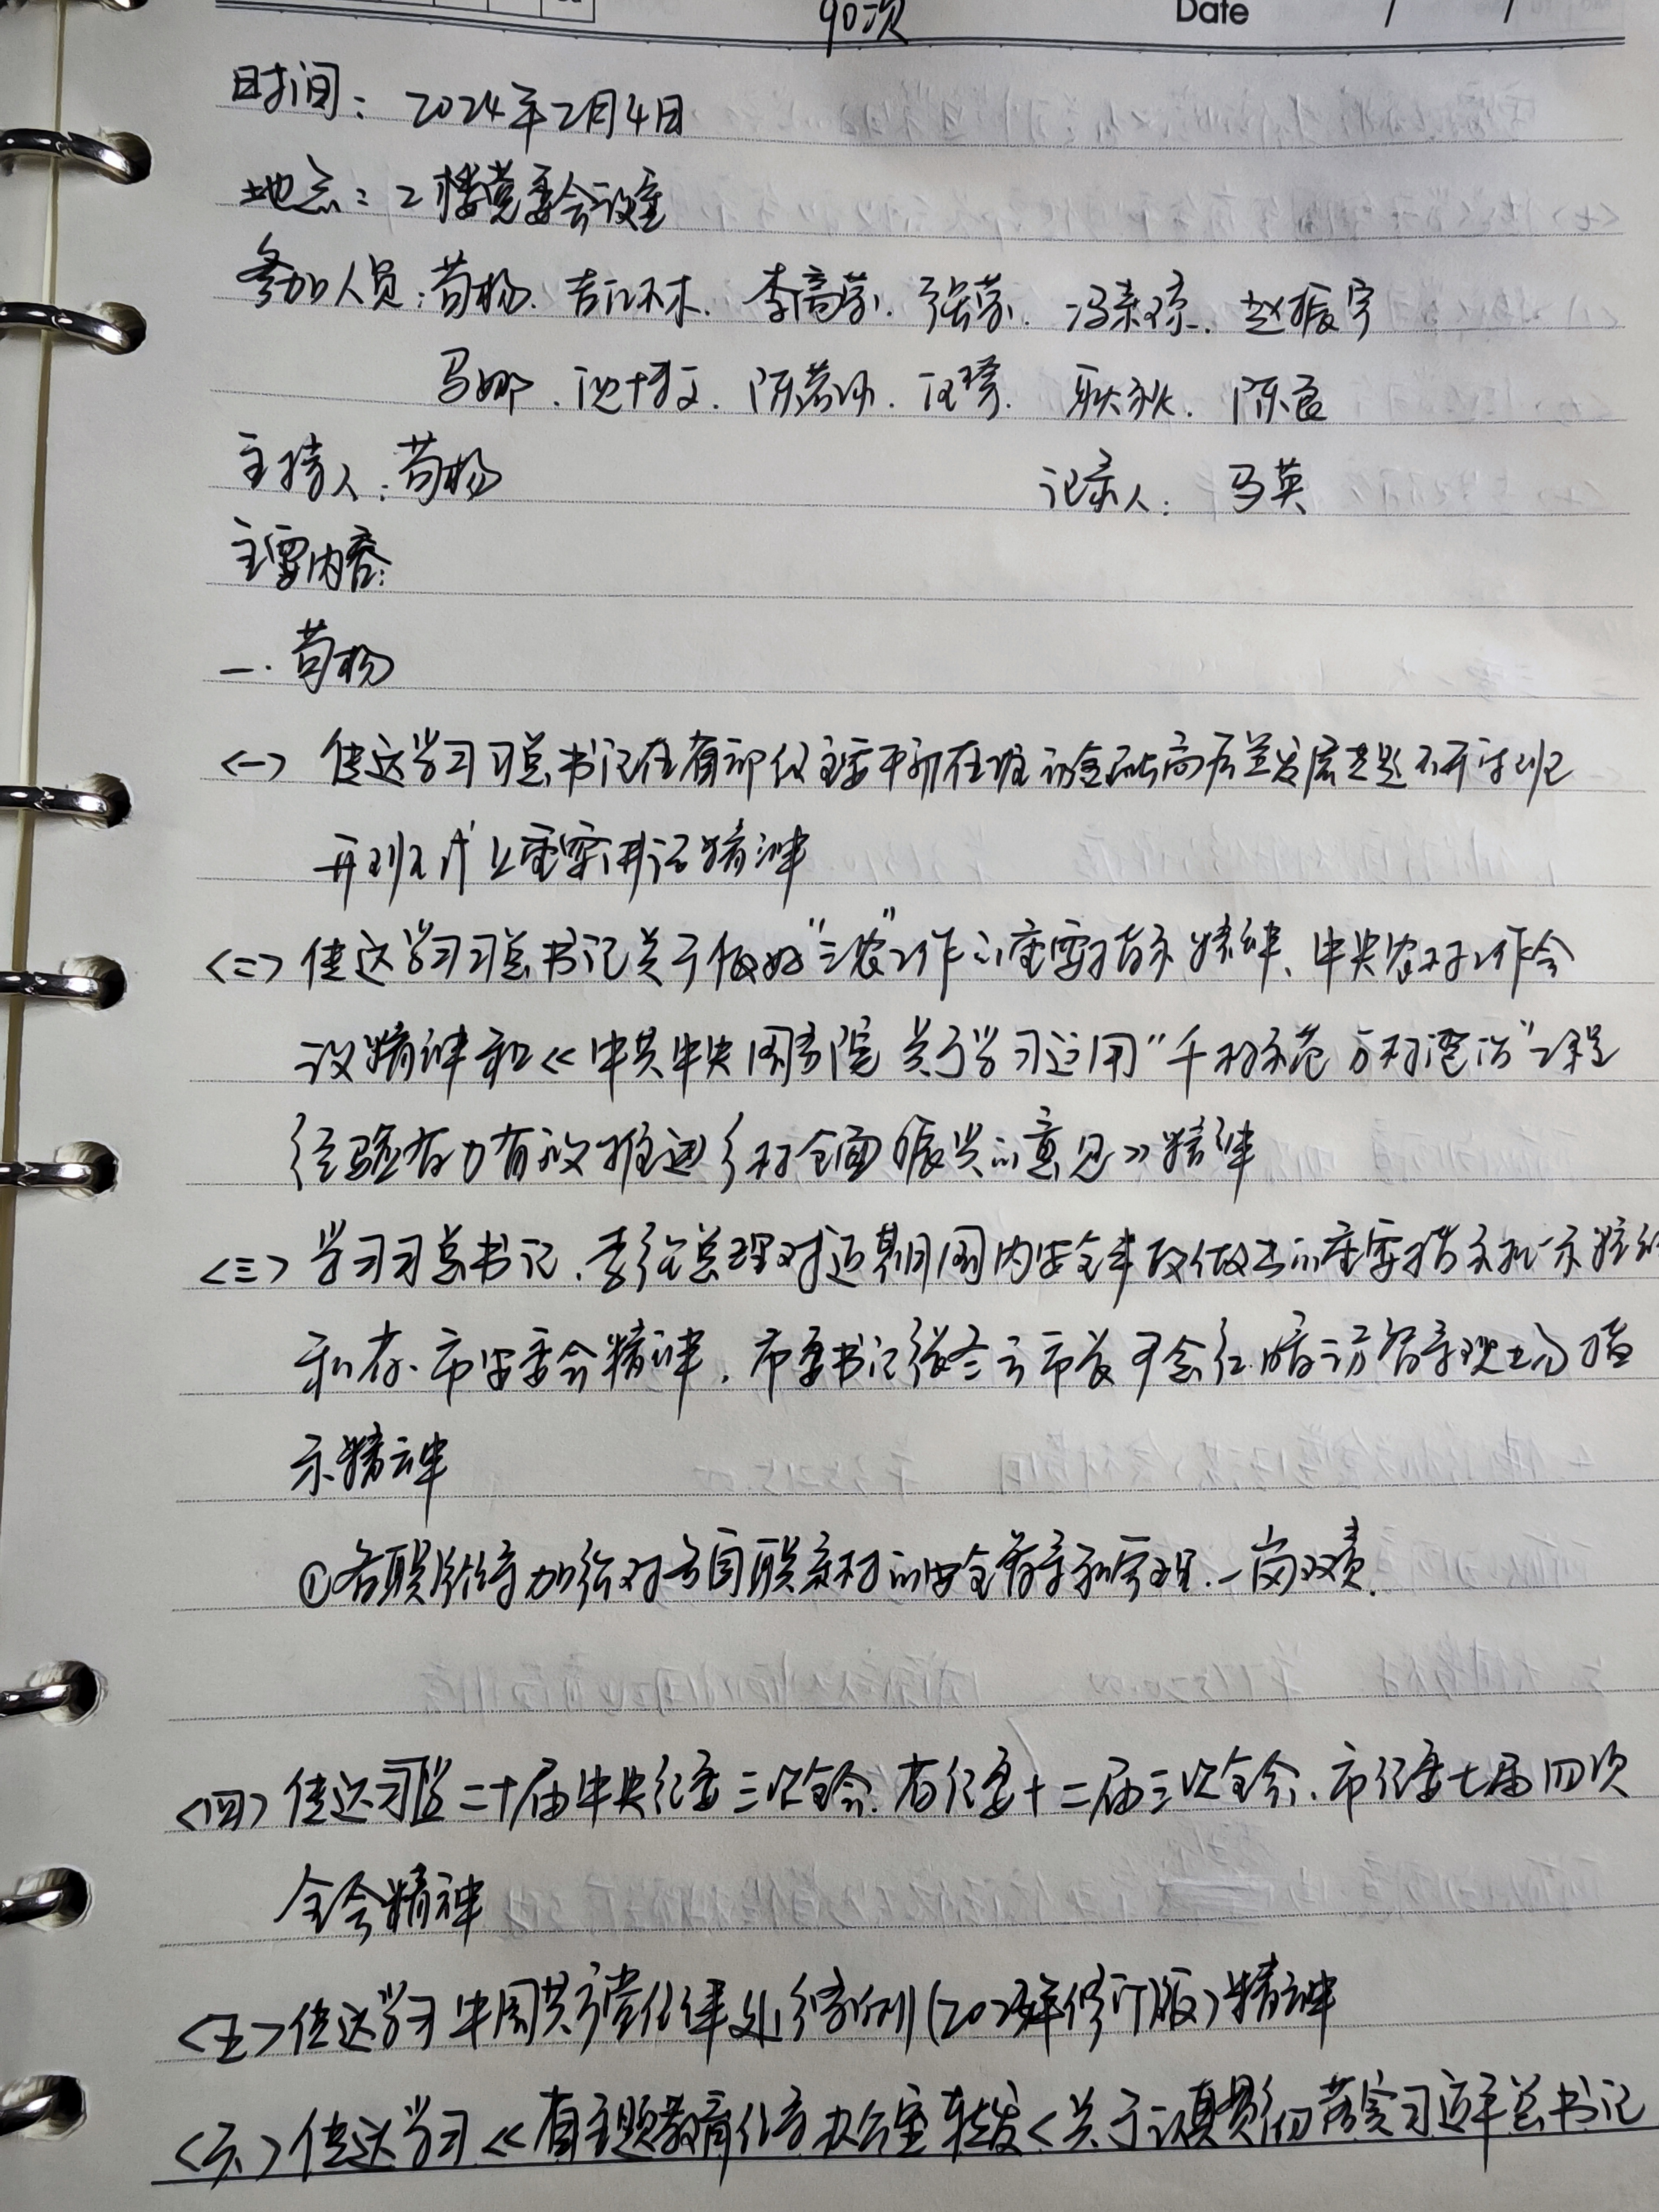 90次
Date / /
时间：2024年2月4日
地点：二楼党委会议室
参加人员：苟杨、吉江木、李高荣、张芸、冯素琼、赵振宇
马娜、池博文、陈若冰、汪琴、耿秋、陈良
主持人：苟杨 记录人：马英
主要内容：
一.苟杨
<一> 传达学习习总书记在省部级主要干部推动金融高质量发展专题研讨班
开班式上重要讲话精神
<二> 传达学习习总书记关于做好“三农”工作的重要指示精神、中央农村工作会
议精神和《中共中央国务院关于学习运用“千村示范万村整治”工程
经验有力有效推进乡村全面振兴的意见》精神
<三> 学习习总书记、李强总理对近期国内安全事故做出的重要指示批示精神
和省、市安委会精神，市委书记 市长 暗访督导现场指
示精神
①各联 领导加强对各自联系村的安全督导和管理.一岗双责.
<四> 传达习学二十届中央纪委三次全会、省纪委十二届三次全会、市纪委七届四次
全会精神
<五> 传达学习中国共产党纪律处分条例(2023年修订版)精神
<六> 传达学习《省主题教育领导办公室转发<关于认真贯彻落实习近平总书记